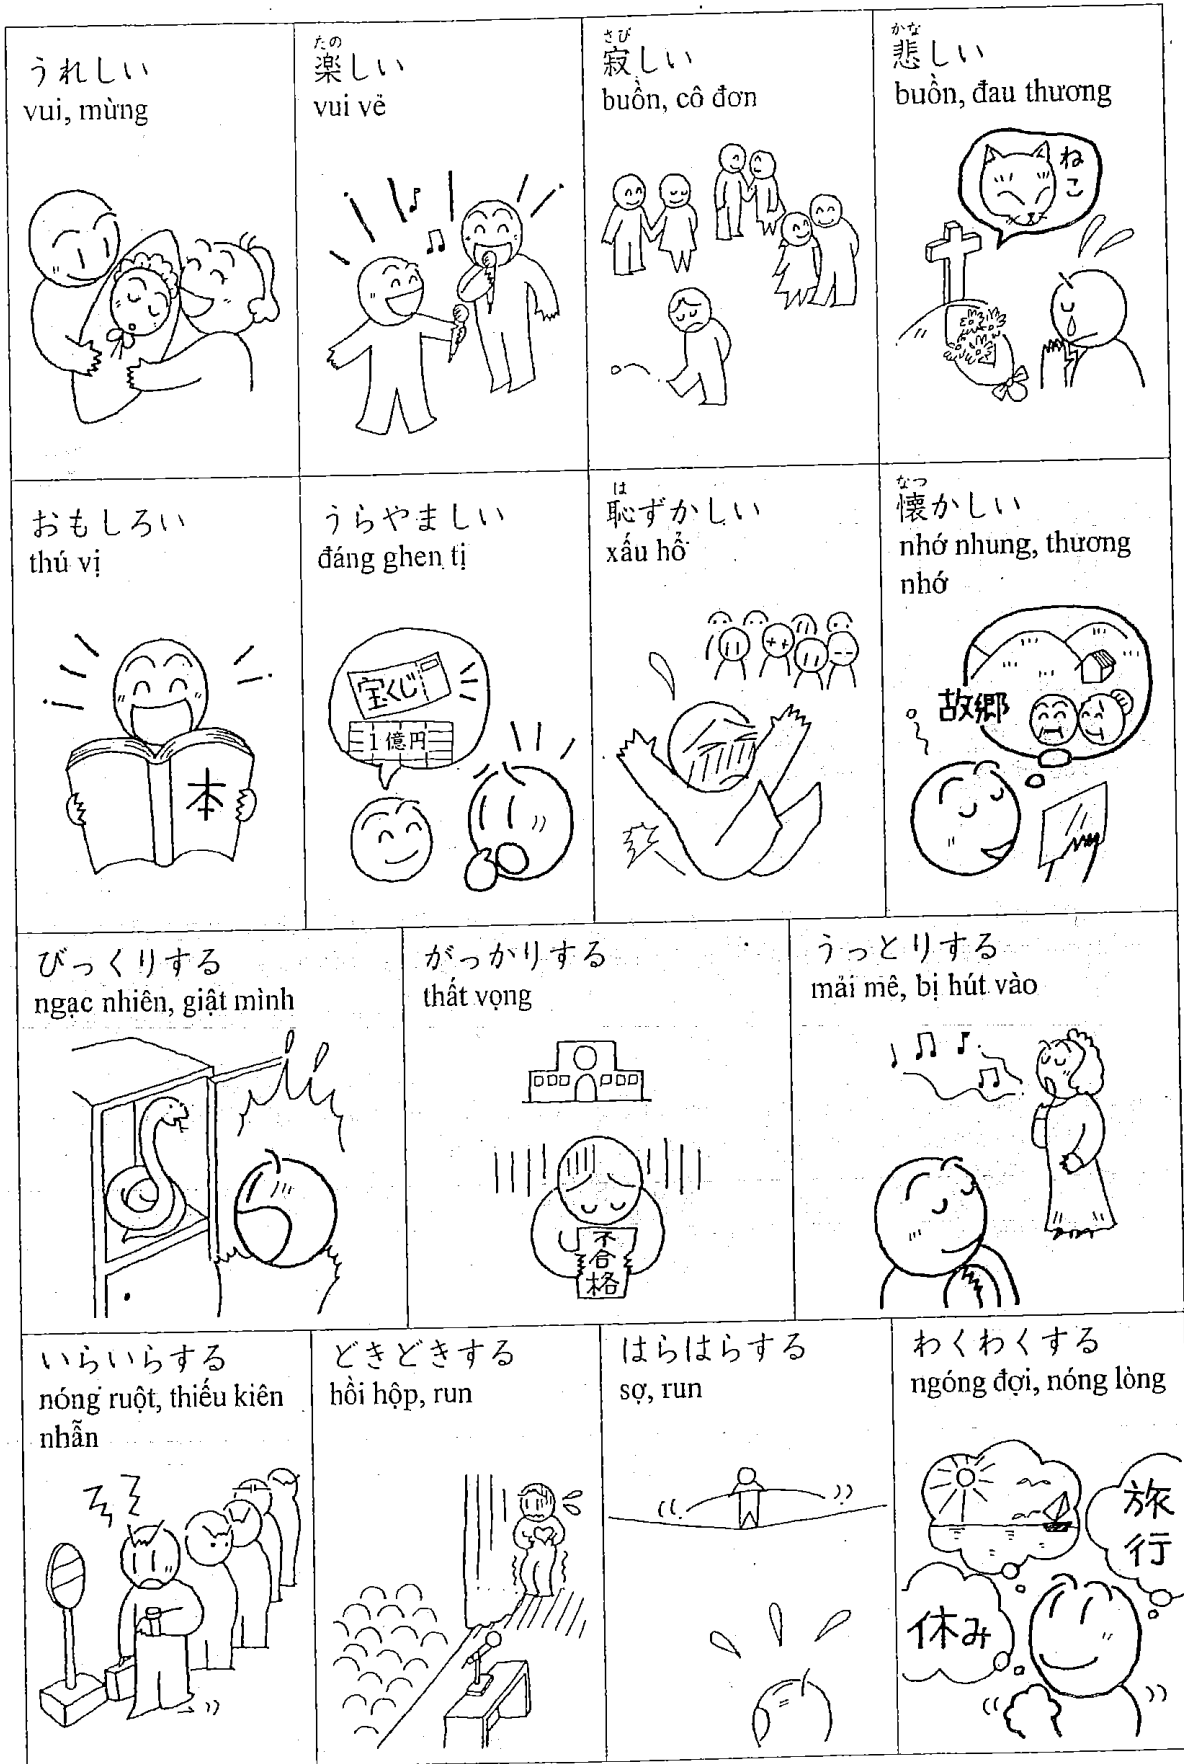 うれしい
vui, mừng
たの
楽しい
vui vẻ
さび
寂しい
buồn, cô đơn
かな
悲しい
buồn, đau thương
ねこ
おもしろい
thú vị
本
うらやましい
đáng ghen tị
宝くじ
1億円
は
恥ずかしい
xấu hổ
なつ
懐かしい
nhớ nhung, thương
nhớ
故郷
びっくりする
ngạc nhiên, giật mình
がっかりする
thất vọng
不合格
うっとりする
mải mê, bị hút vào
いらいらする
nóng ruột, thiếu kiên
nhẫn
どきどきする
hồi hộp, run
はらはらする
sợ, run
わくわくする
ngóng đợi, nóng lòng
旅
行
休み